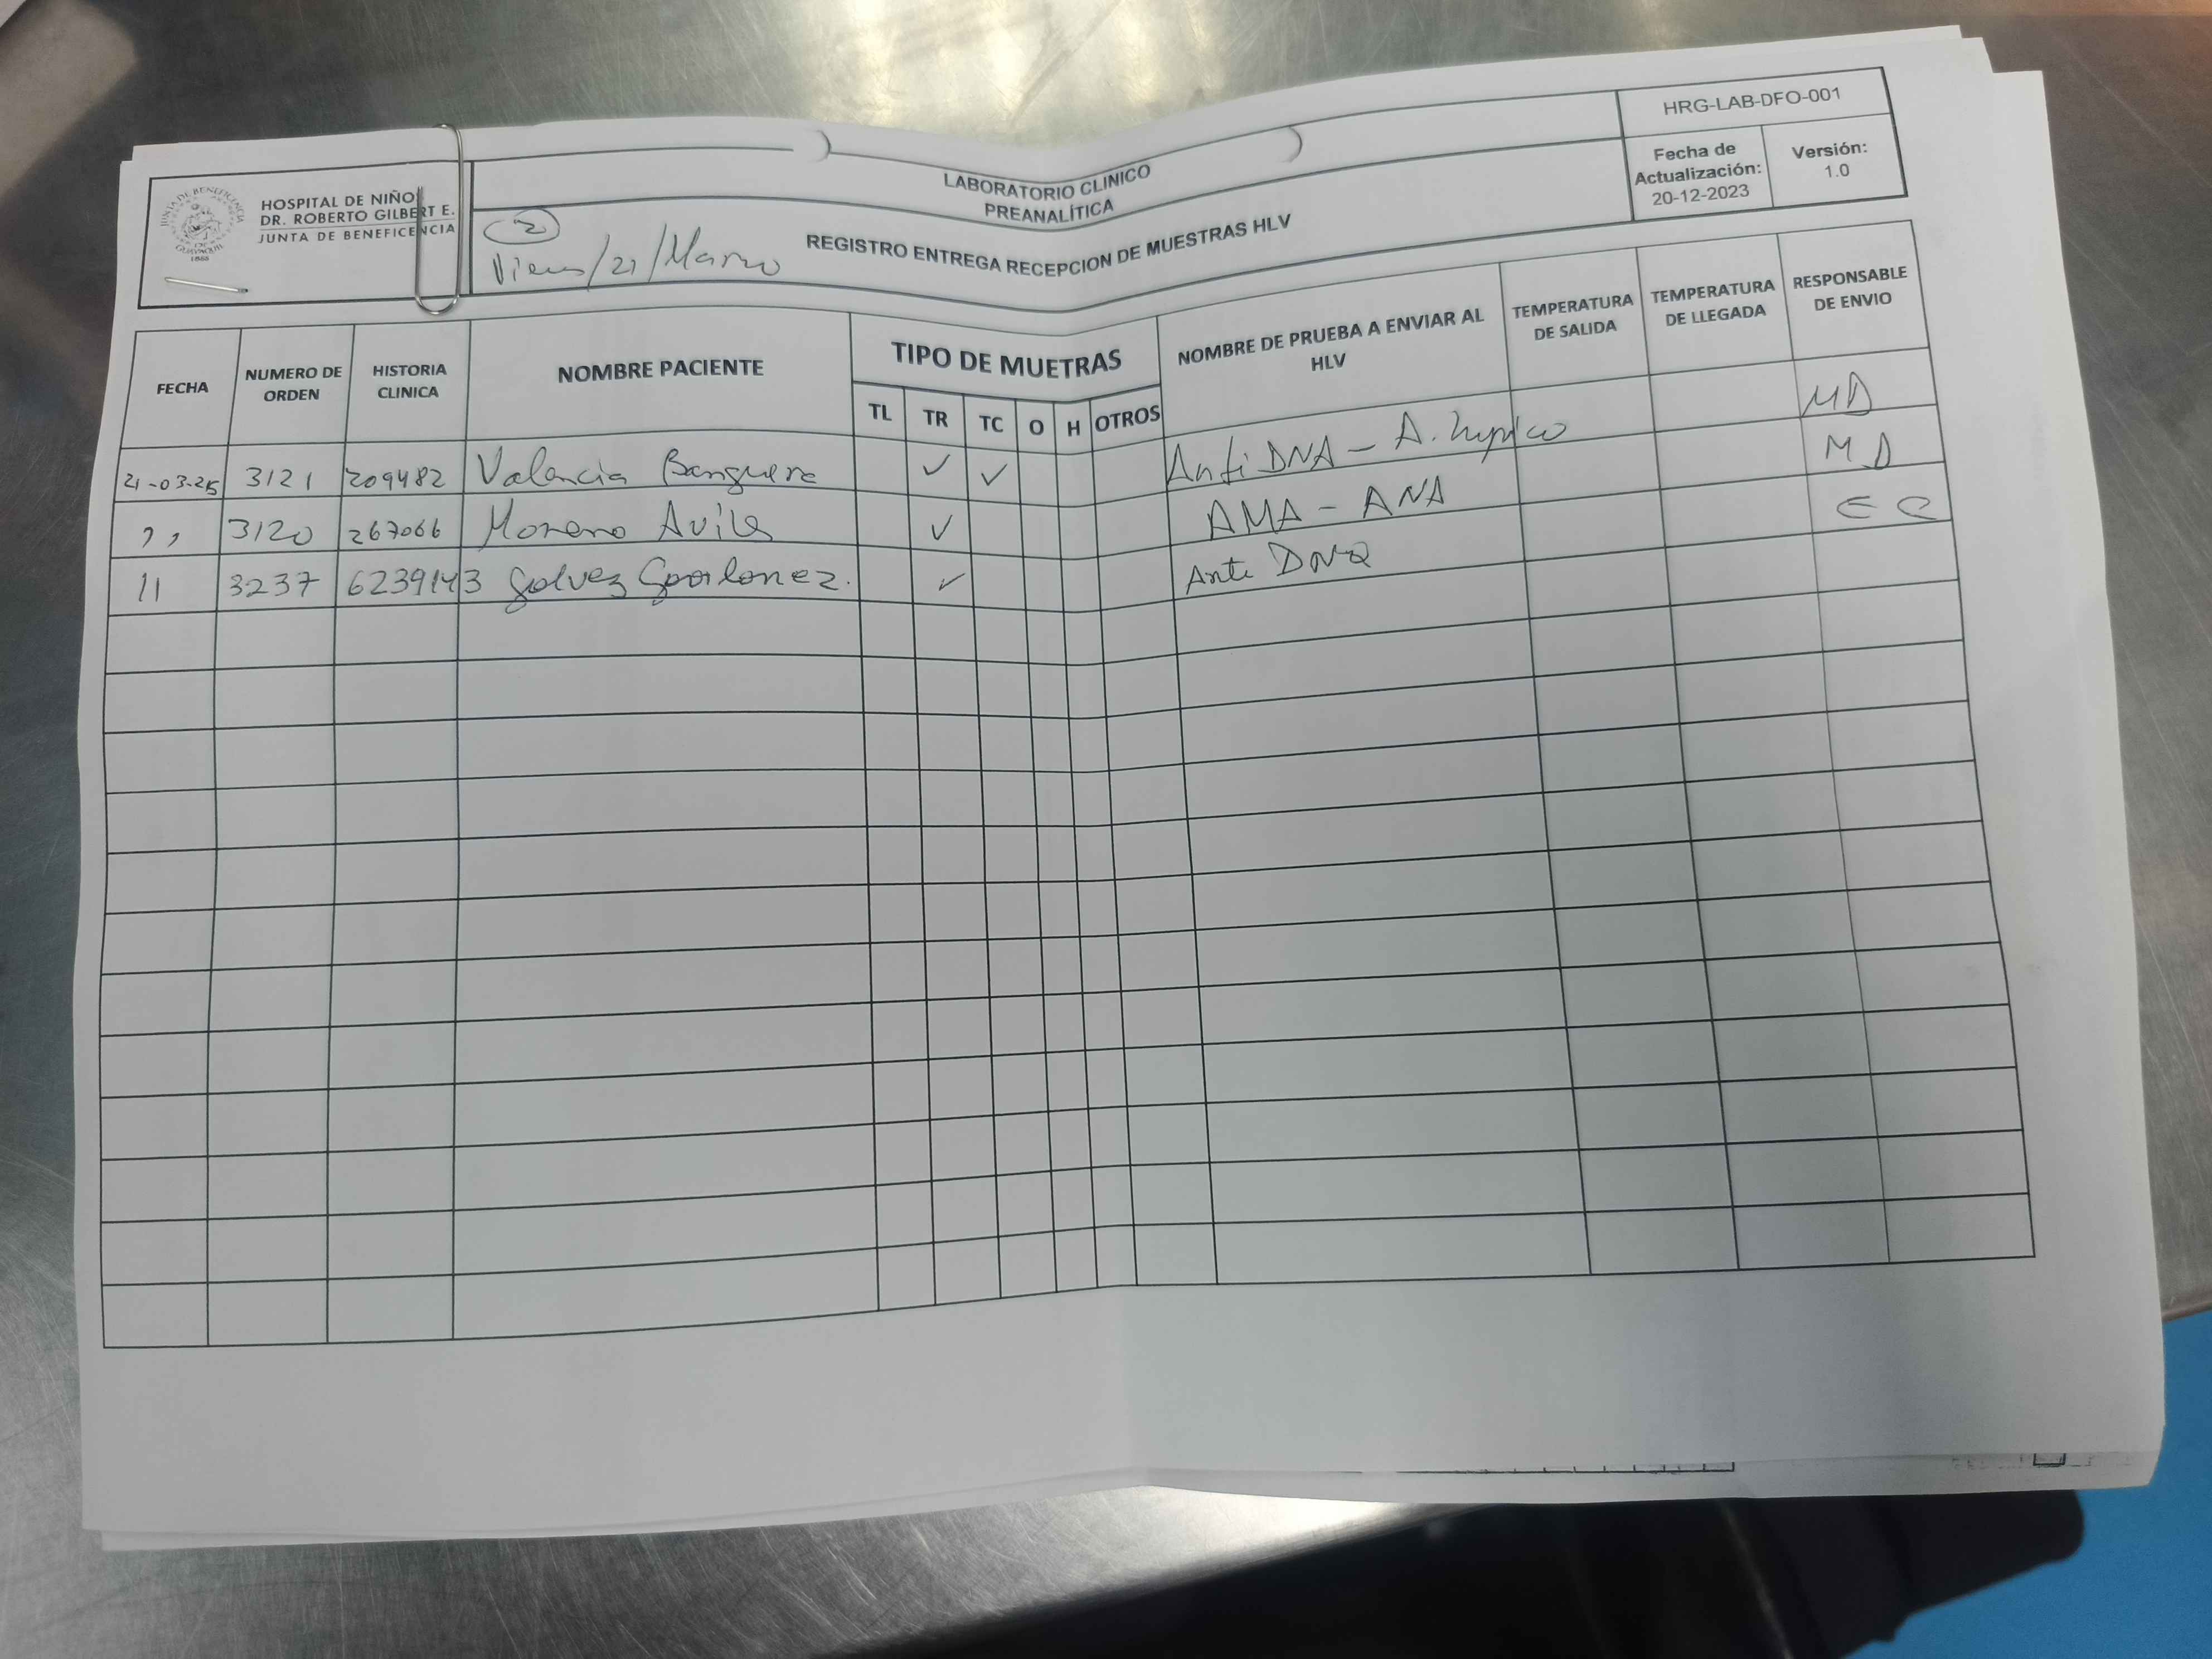 HRG-LAB-DFO-001
Fecha de Actualización: 20-12-2023
Versión: 1.0
JUNTA DE BENEFICENCIA
GUAYAQUIL
1888
HOSPITAL DE NIÑOS
DR. ROBERTO GILBERT E.
JUNTA DE BENEFICENCIA
LABORATORIO CLINICO
PREANALÍTICA
REGISTRO ENTREGA RECEPCION DE MUESTRAS HLV
2
Viern/21/Marzo
FECHA NUMERO DE ORDEN HISTORIA CLINICA NOMBRE PACIENTE TIPO DE MUETRAS NOMBRE DE PRUEBA A ENVIAR AL HLV TEMPERATURA DE SALIDA TEMPERATURA DE LLEGADA RESPONSABLE DE ENVIO
TL TR TC O H OTROS
21-03-25 3121 209482 Valencia Banguera ✓ ✓ AntiDNA - A. Lupico MD
,, 3120 267066 Moreno Avila ✓ AMA - ANA MD
11 3237 6239143 Galvez ✓ Anti DNA